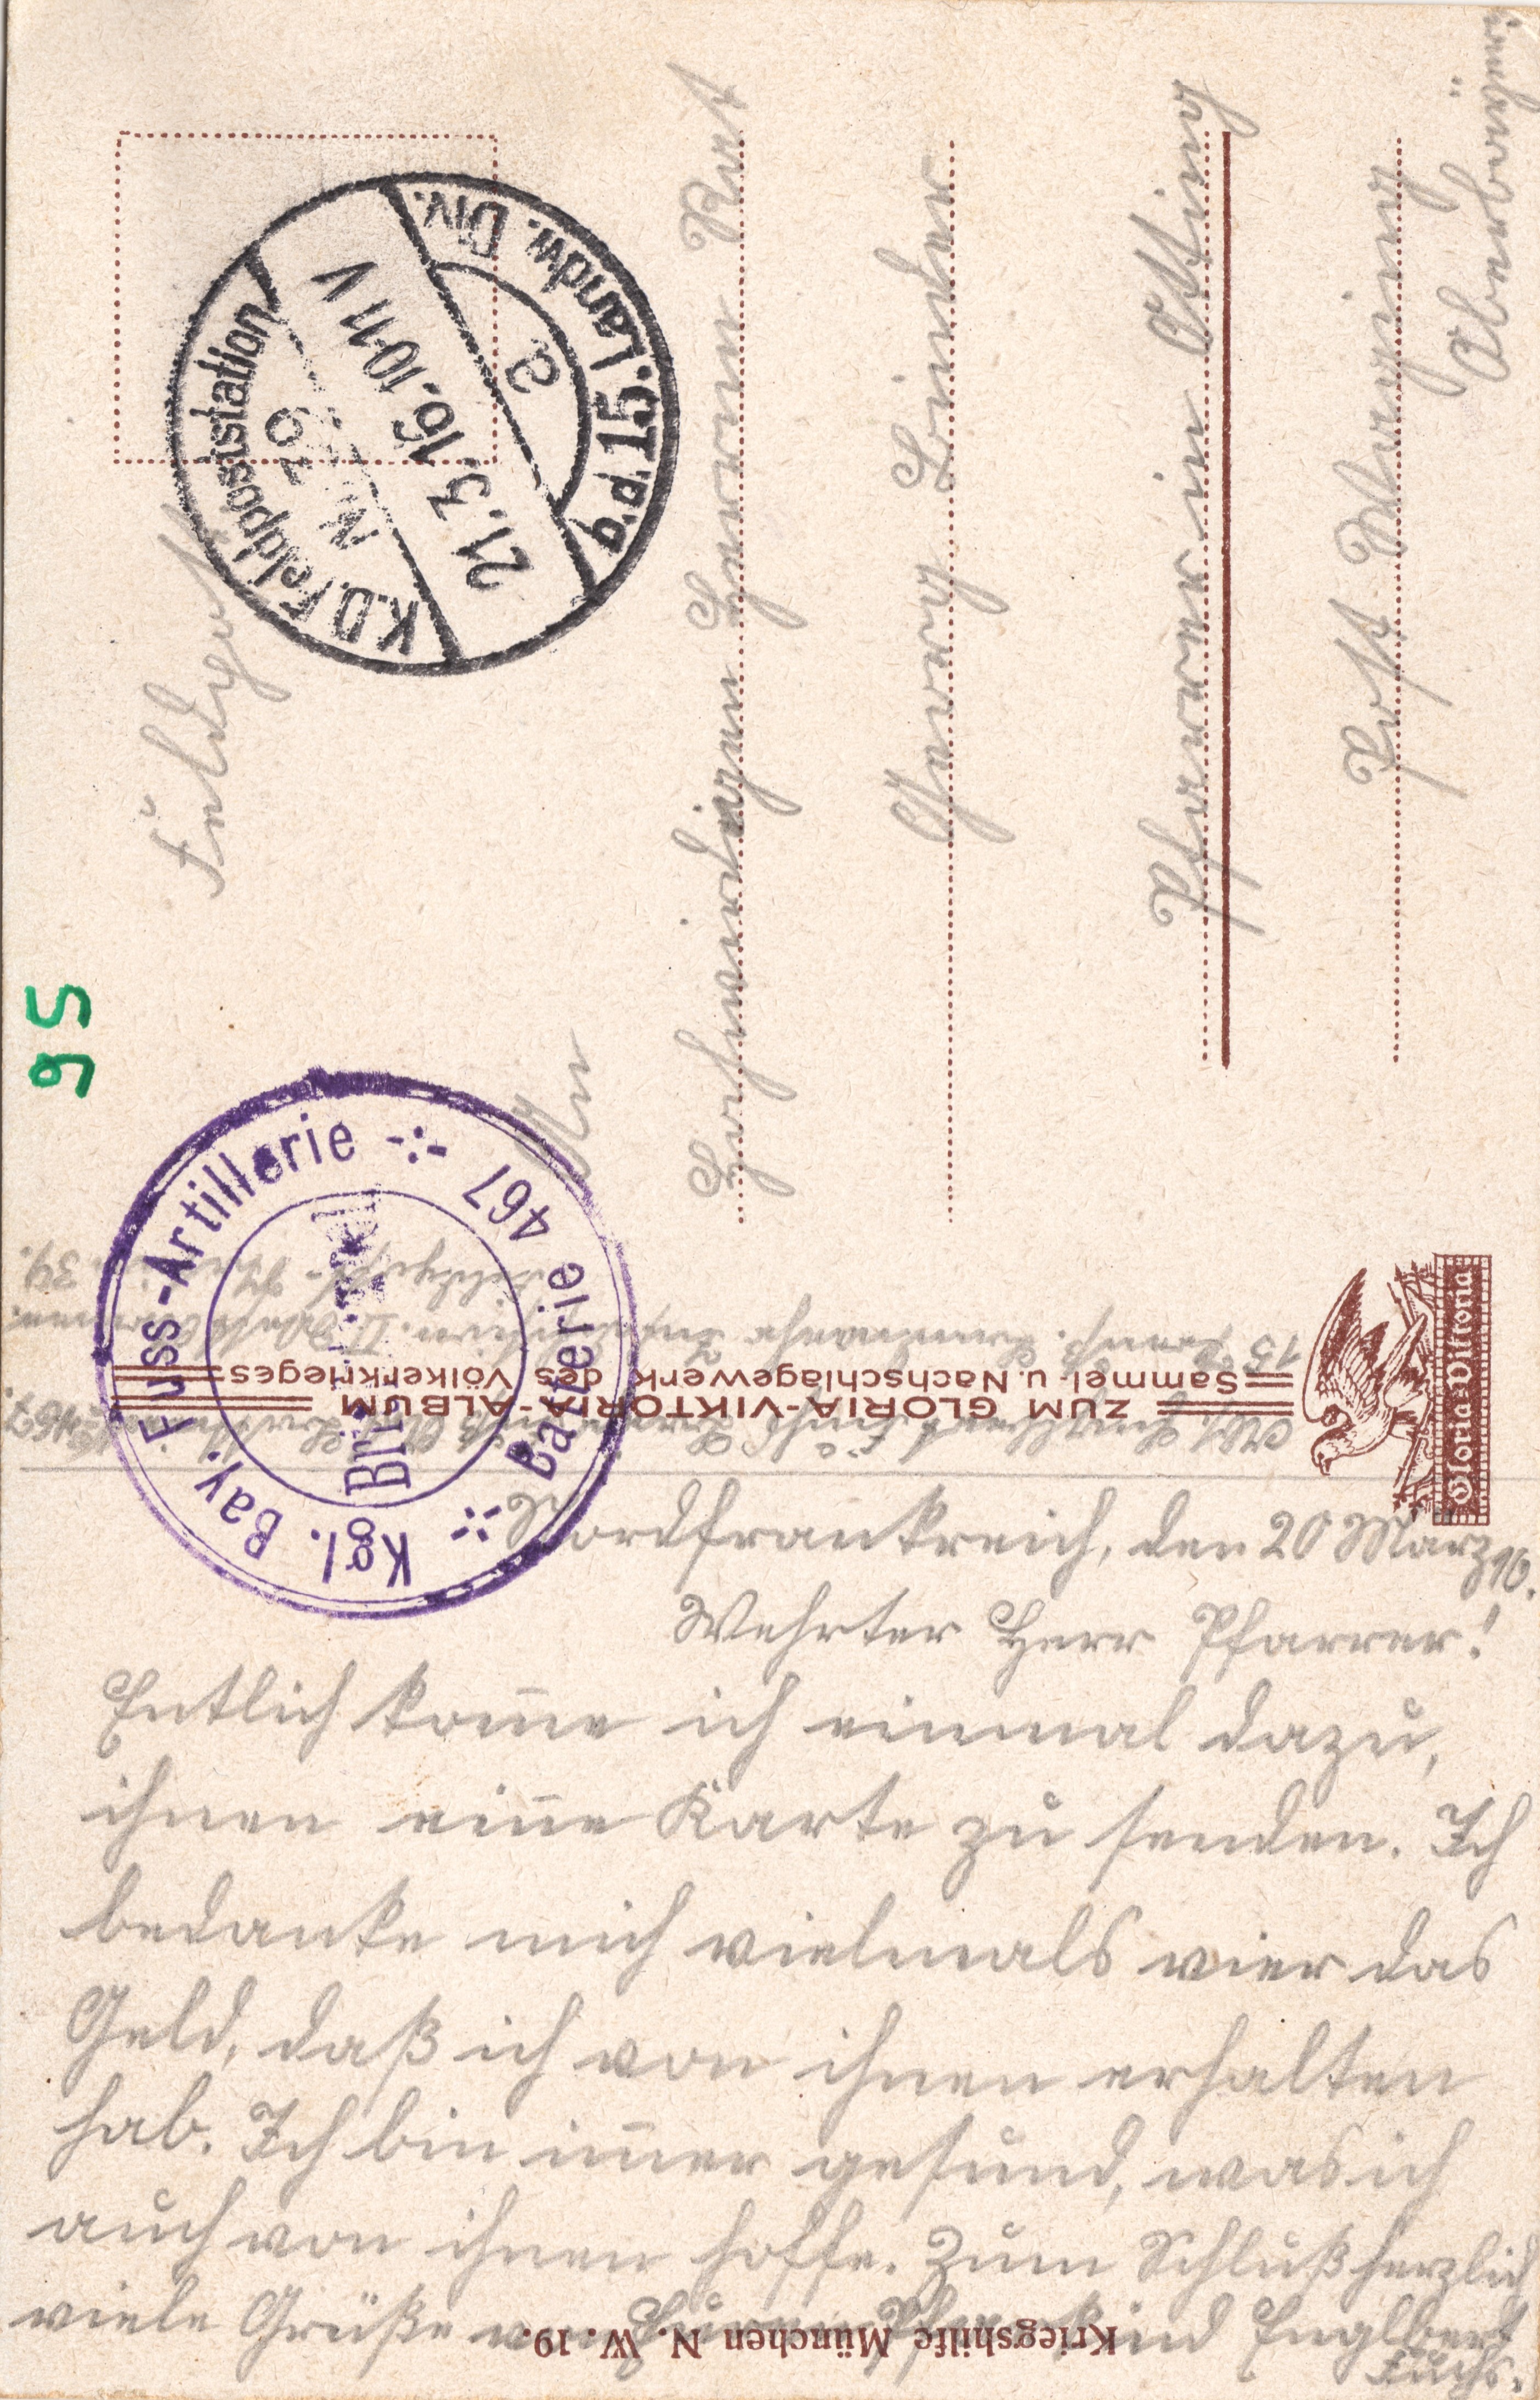 Feldpost.
K.D. Feldpoststation
Nr. 19
21.3.16. 10-11 V
a
b. d. 15. Landw. Div.
95
An
Hochwirdigen Herrn Herrn
Georg Linder
Pfarrer in Otting
Post
Kgl. Bay. Fuss-Artillerie
Batterie 467
ZUM GLORIA-VIKTORIA-ALBUM
Sammel- u. Nachschlagewerk des Völkerkrieges
Gloria-Viktoria
15
Nordfrankreich, den 20 März 16.
Wehrter Herr Pfarrer!
Entlich kom̄e ich einmal dazu,
ihnen eine Karte zu senden. Ich
bedanke mich vielmals vier das
Geld, daß ich von ihnen erhalten
hab. Ich bin im̄er gesund, was ich
auch von ihnen hoffe. Zum Schluß herzlich
viele Grüße von Pfarrkind Englbert
Fuchs.
Kriegshilfe München N. W. 19.